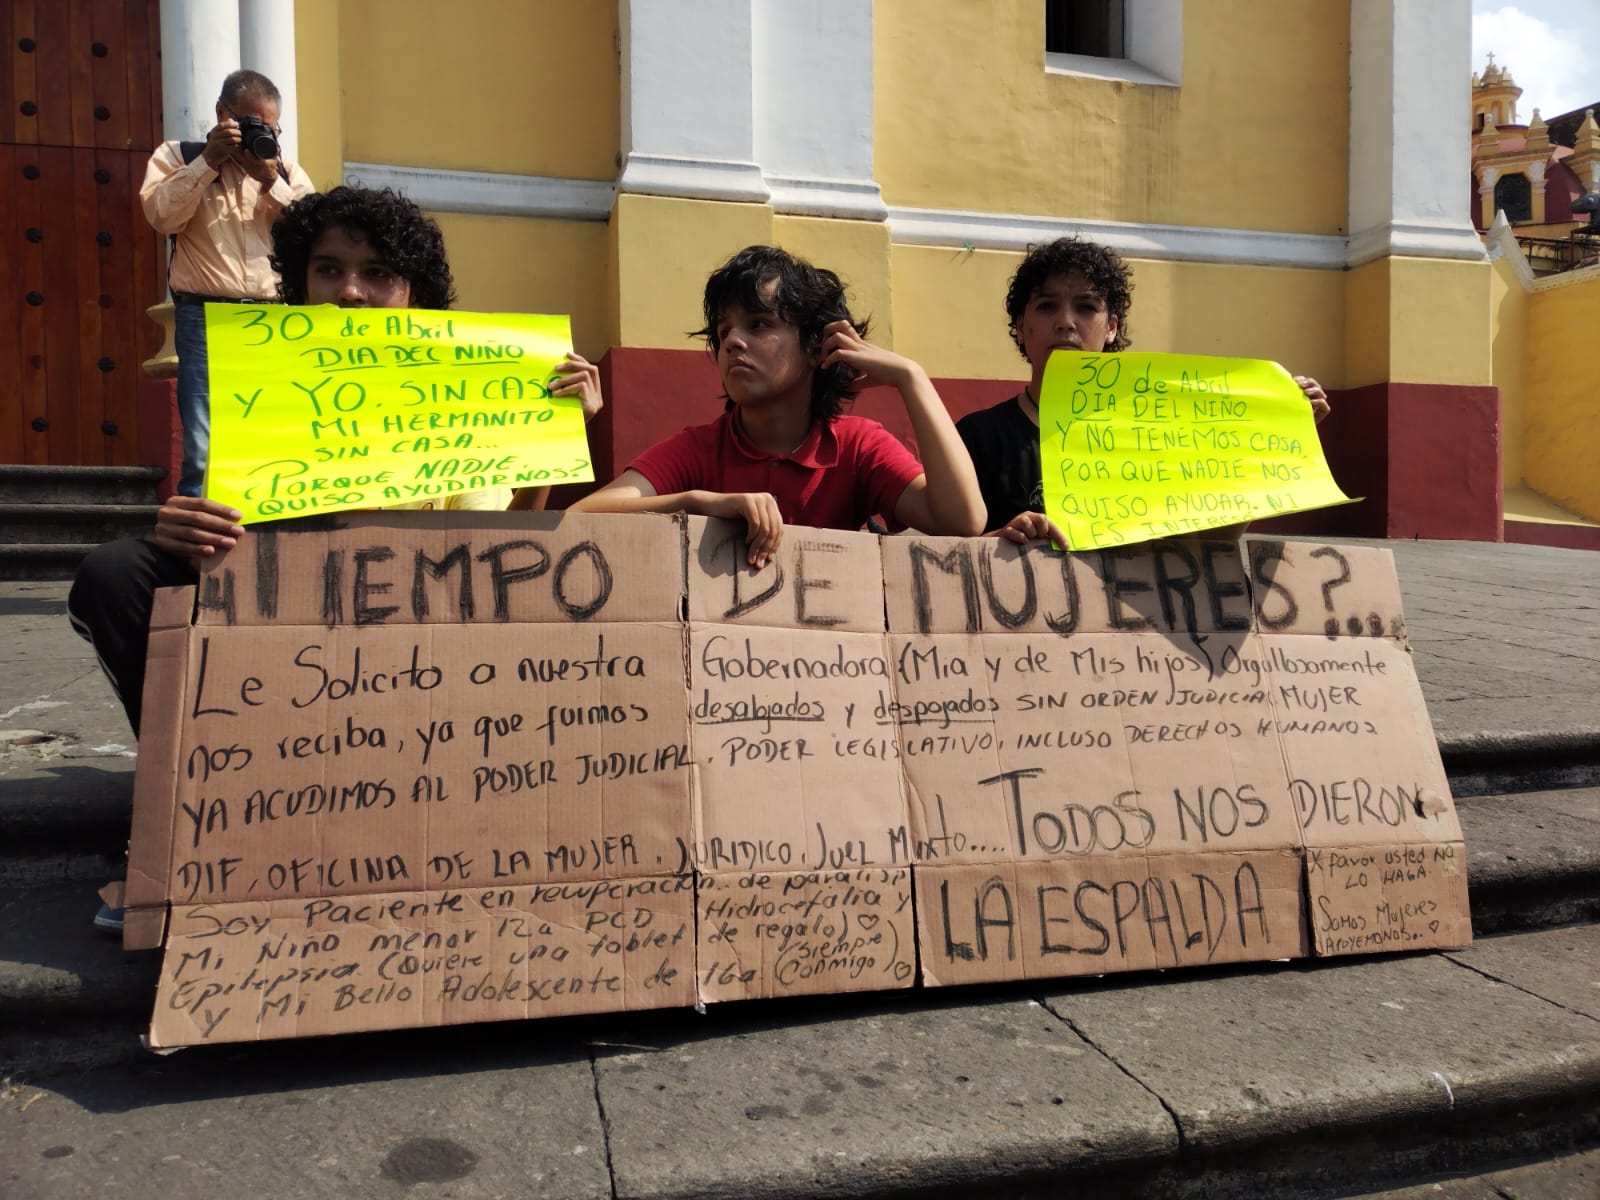 30 de Abril
DIA DEL NIÑO
Y YO. SIN CASA
MI HERMANITO
SIN CASA...
¿PORQUE NADIE
QUISO AYUDARNOS?
30 de Abril
DIA DEL NIÑO
Y NO TENEMOS CASA,
POR QUE NADIE NOS
QUISO AYUDAR. NI
LES INTERESO
TIEMPO DE MUJERES?...
Le Solicito a nuestra Gobernadora (Mia y de Mis hijos) Orgullosamente MUJER
nos reciba, ya que fuimos desalojados y despojados SIN ORDEN JUDICIAL
YA ACUDIMOS AL PODER JUDICIAL, PODER LEGISLATIVO, INCLUSO DERECHOS HUMANOS
DIF, OFICINA DE LA MUJER, JURIDICO, Juez Mixto.... TODOS NOS DIERON
LA ESPALDA
Soy Paciente en recuperación.. de
Mi Niño menor 12a PCD Hidrocefalia y
Epilepsia (Quiere una tablet de regalo) ♡
y Mi Bello Adolescente de 16a (siempre conmigo) ♡
X favor usted NO
LO HAGA.
Somos Mujeres
APOYEMONOS.. ♡